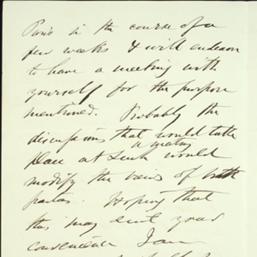 Paris in the course of a
few weeks & will endeavor
to have a meeting with
yourself for the purpose
mentioned. Probably the
discussions that would take
place at such a meeting would
modify the views of both
parties. Hoping that
this may suit your
convenience I am